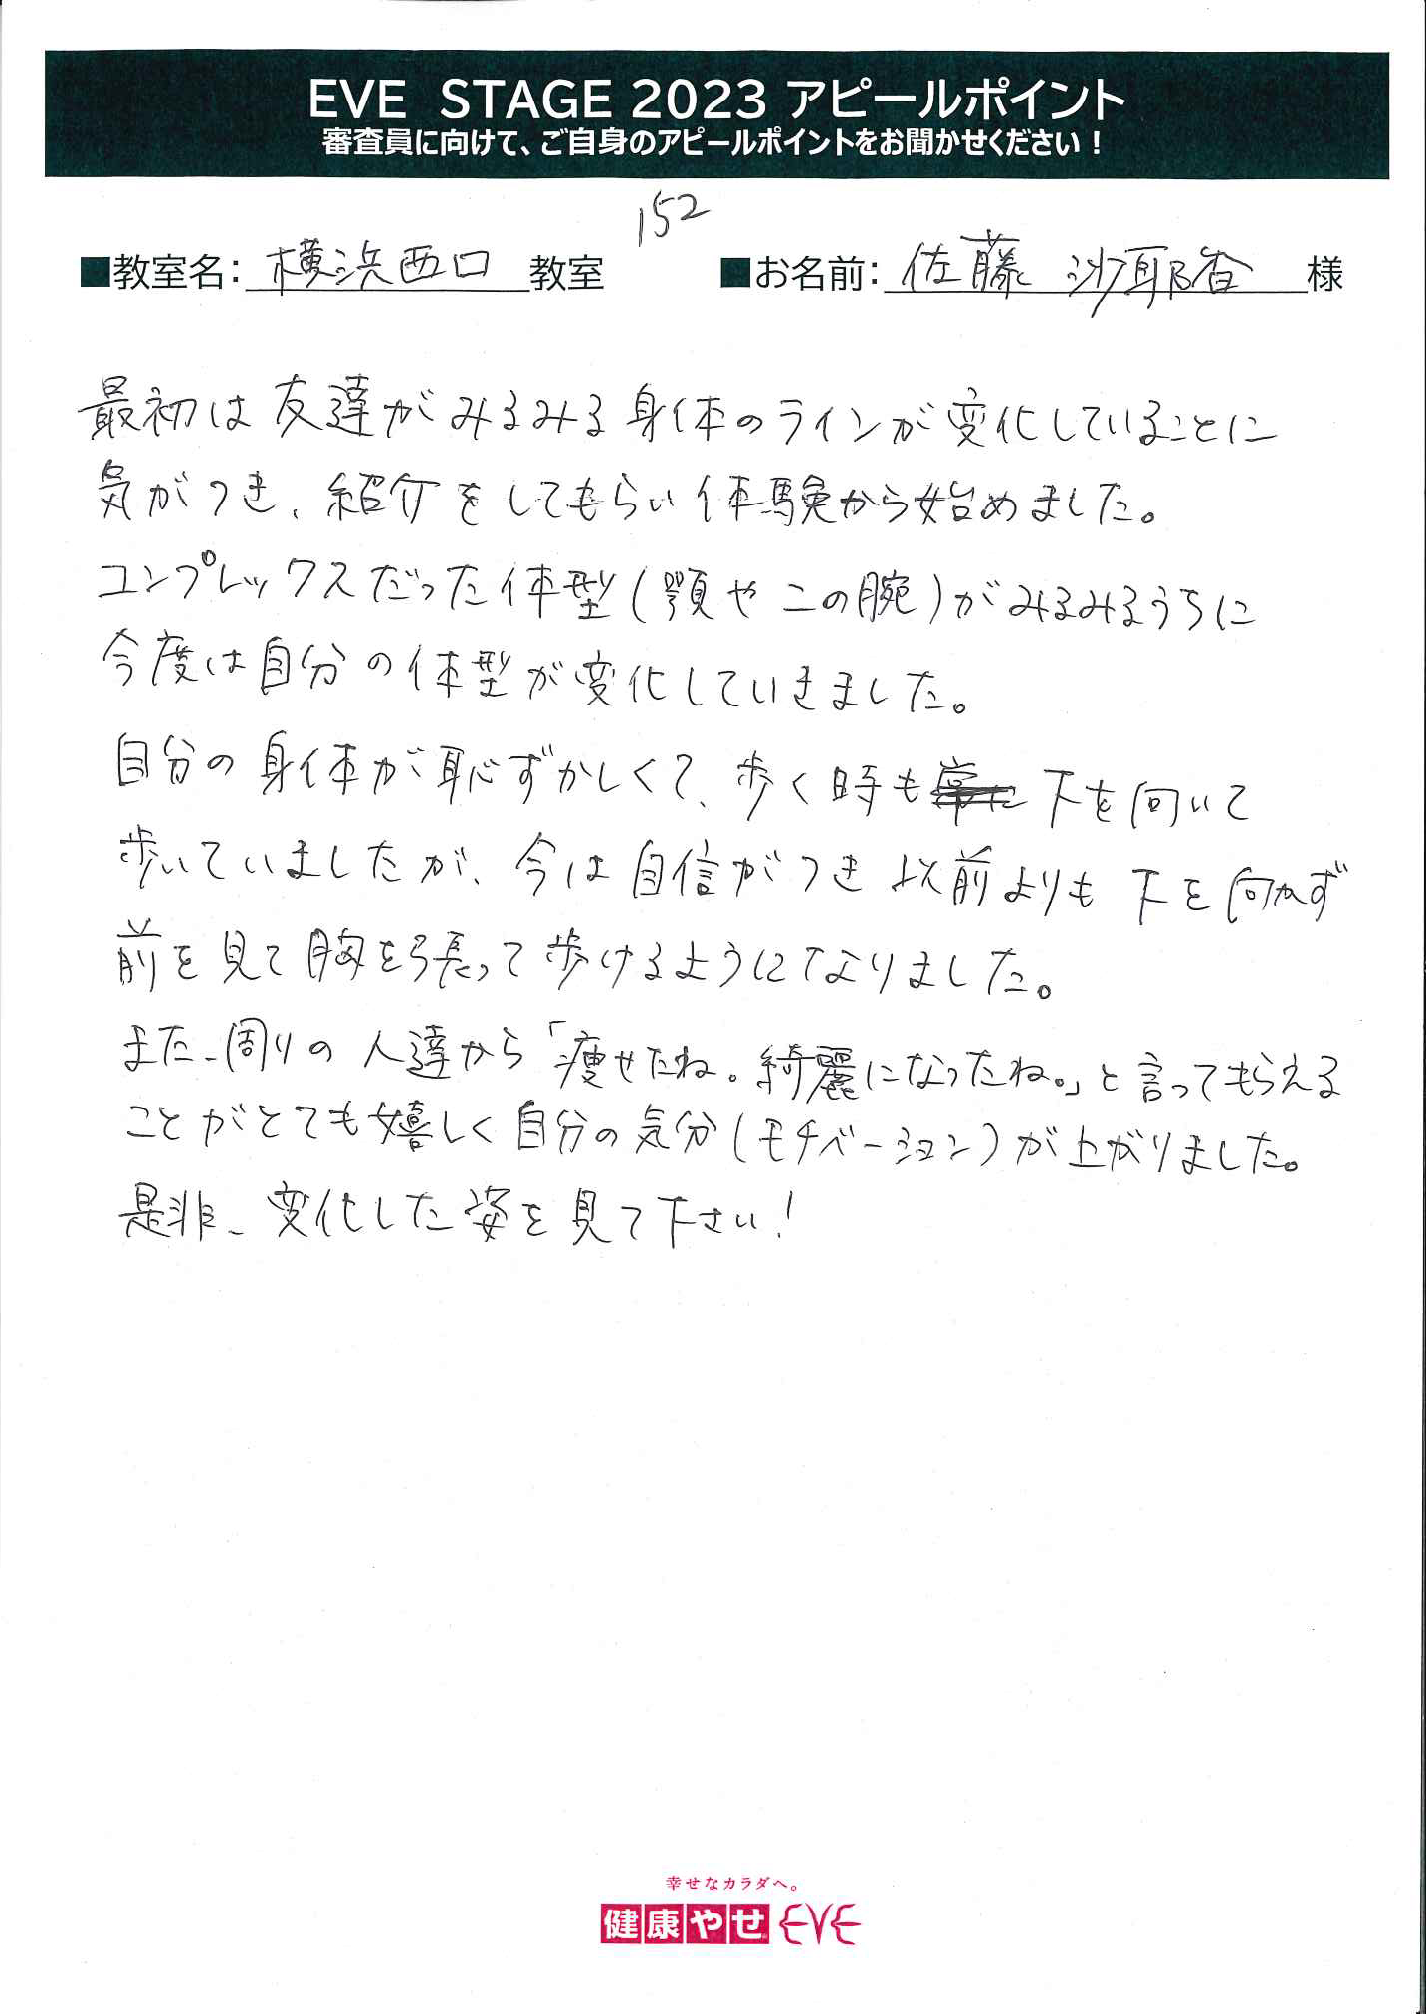 EVE STAGE 2023 アピールポイント
審査員に向けて、ご自身のアピールポイントをお聞かせください！
152
■教室名：横浜西口教室 ■お名前：佐藤 沙耶香 様
最初は友達がみるみる身体のラインが変化していることに
気がつき、紹介をしてもらい体験から始めました。
コンプレックスだった体型(顎や二の腕)がみるみるうちに
今度は自分の体型が変化していきました。
自分の身体が恥ずかしくて、歩く時も常に下を向いて
歩いていましたが、今は自信がつき以前よりも下を向かず
前を見て胸を張って歩けるようになりました。
また、周りの人達から「痩せたね。綺麗になったね。」と言ってもらえる
ことがとても嬉しく自分の気分(モチベーション)が上がりました。
是非、変化した姿を見て下さい！
幸せなカラダへ。
健康やせ EVE